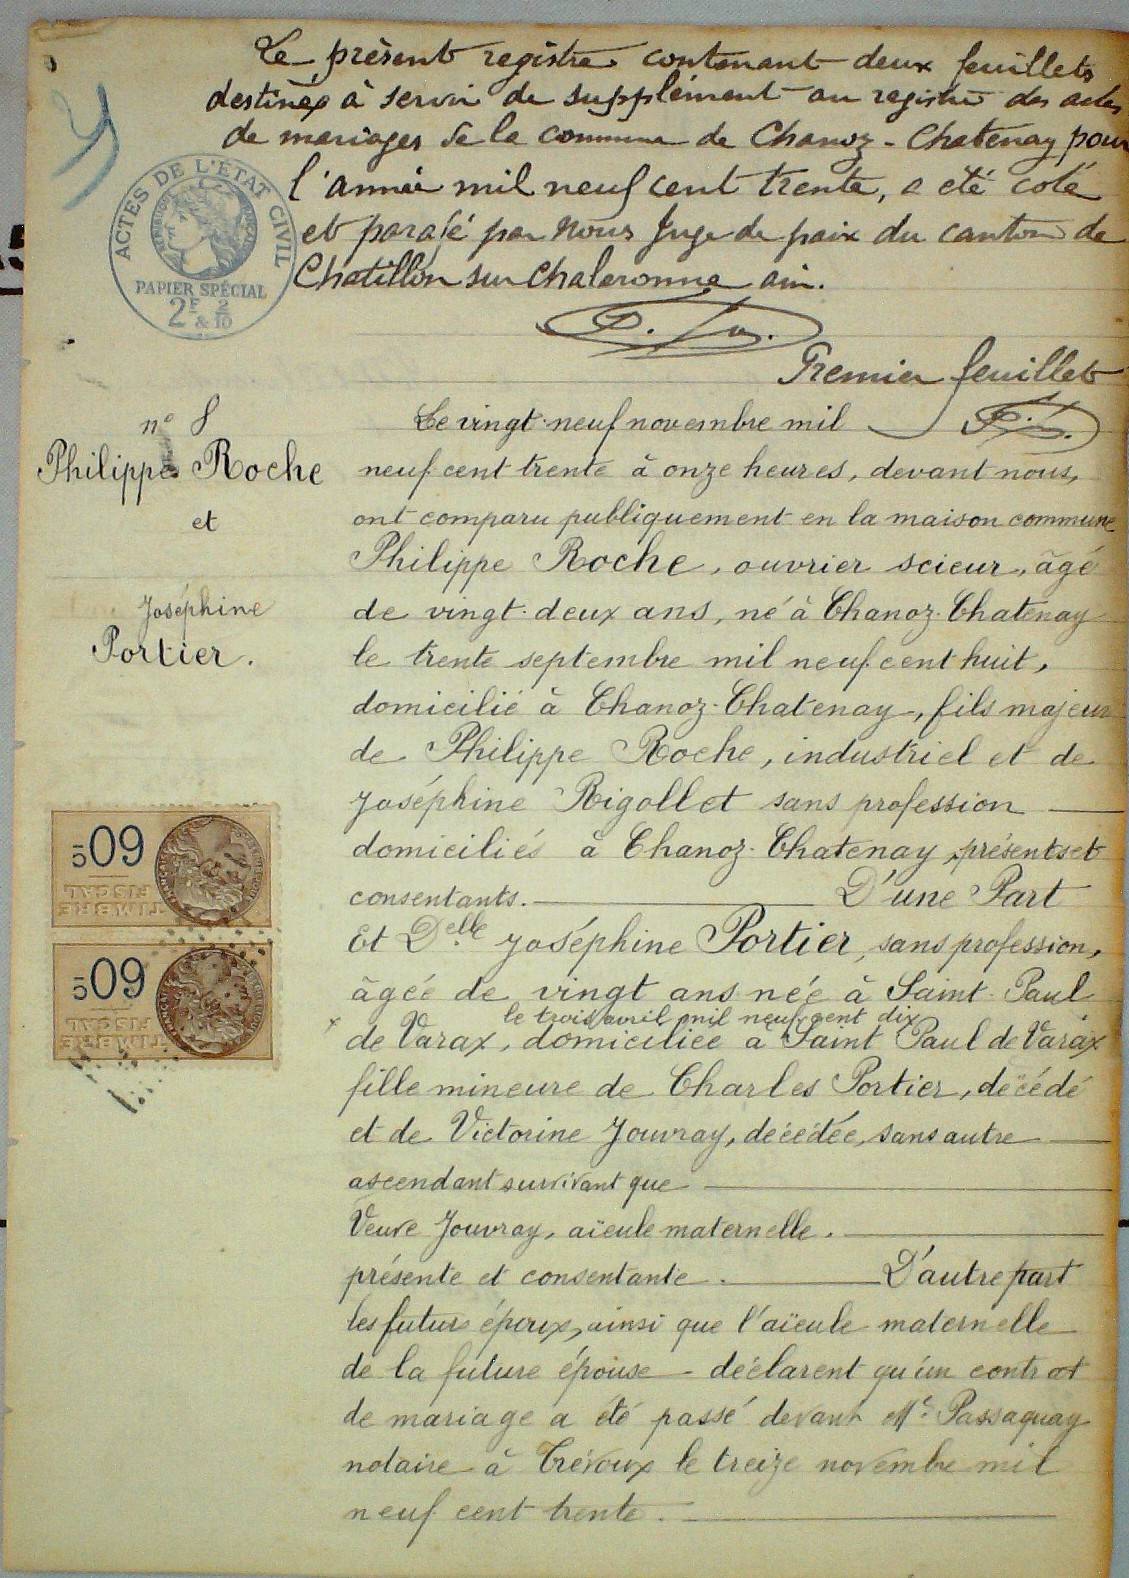 Le présent registre contenant deux feuillets
destinés à servir de supplément au registre des actes
de mariages de la commune de Chanoz-Chatenay pour
l'année mil neuf cent trente, a été coté
et parafé par Nous Juge de paix du canton de
Chatillon sur Chalaronne ain.
ACTES DE L'ÉTAT CIVIL
PAPIER SPÉCIAL
2F & 2/10
Premier feuillet
n° 8
Philippe Roche
et
Joséphine
Portier.
Le vingt-neuf novembre mil
neuf cent trente à onze heures, devant nous,
ont comparu publiquement en la maison commune
Philippe Roche, ouvrier scieur, âgé
de vingt-deux ans, né à Chanoz-Chatenay
le trente septembre mil neuf cent huit,
domicilié à Chanoz-Chatenay, fils majeur
de Philippe Roche, industriel et de
Joséphine Rigollet sans profession
domiciliés à Chanoz-Chatenay, présents et
consentants. D'une Part
Et Delle Joséphine Portier, sans profession,
âgée de vingt ans née à Saint Paul
le trois avril mil neuf cent dix
de Varax, domiciliée à Saint Paul de Varax
fille mineure de Charles Portier, décédé
et de Victorine Jouvray, décédée, sans autre
ascendant survivant que
Veuve Jouvray, aïeule maternelle.
présente et consentante. D'autre part
les futurs époux, ainsi que l'aïeule maternelle
de la future épouse déclarent qu'un contrat
de mariage a été passé devant Me Passaquay
notaire à Trévoux le treize novembre mil
neuf cent trente.
60
TIMBRE
FISCAL
60
TIMBRE
FISCAL